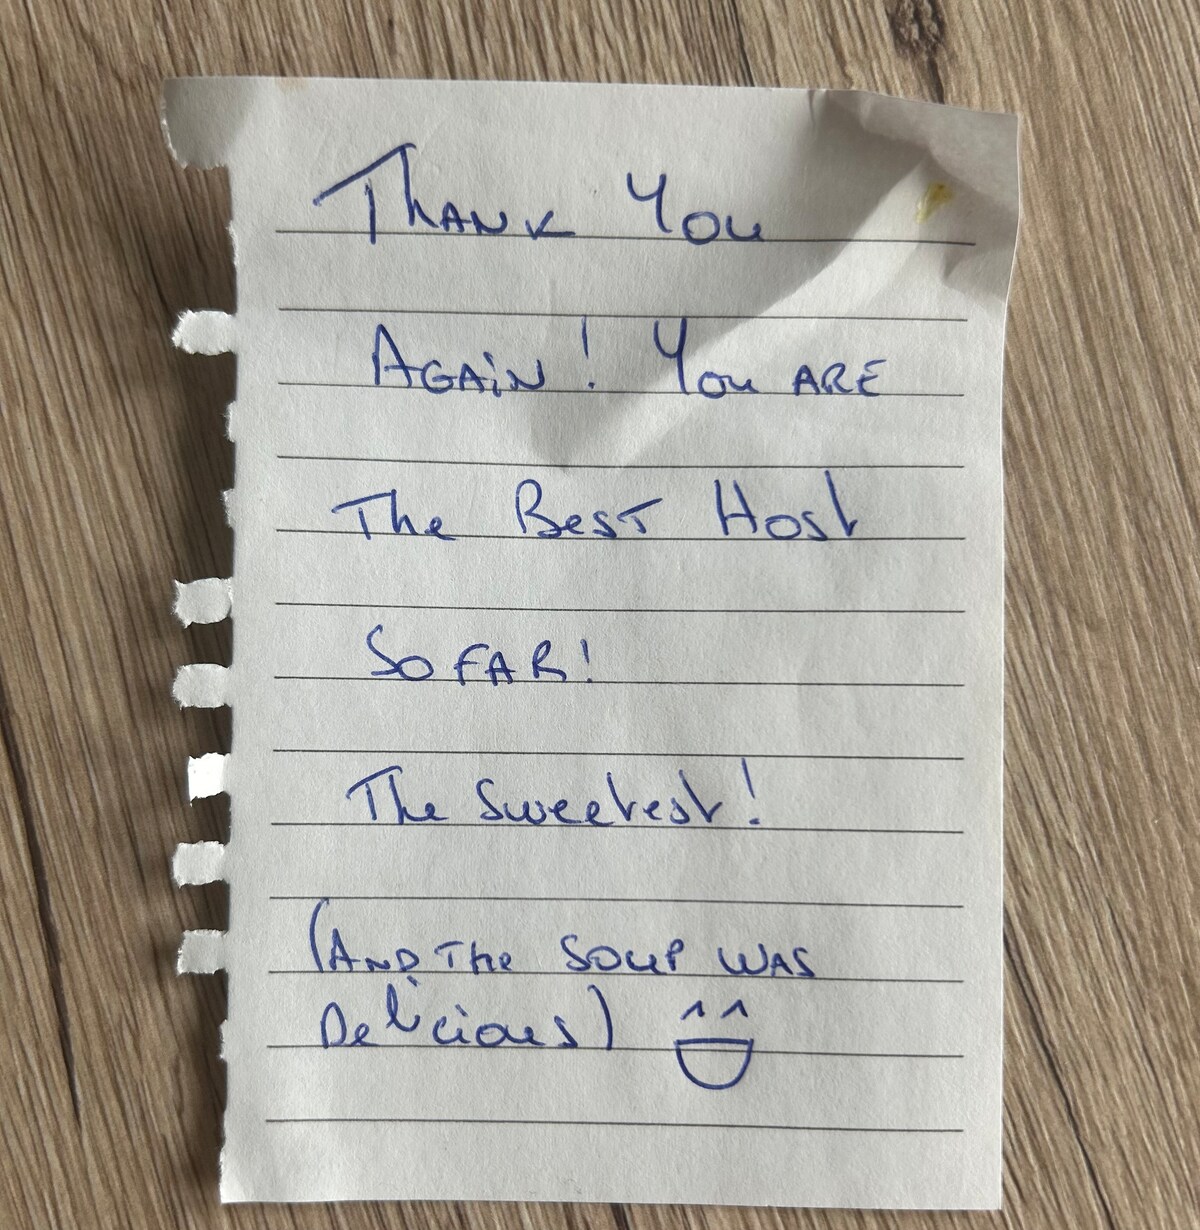 Thank You
Again! You are
The Best Host
So far!
The sweetest!
(And the soup was
Delicious)